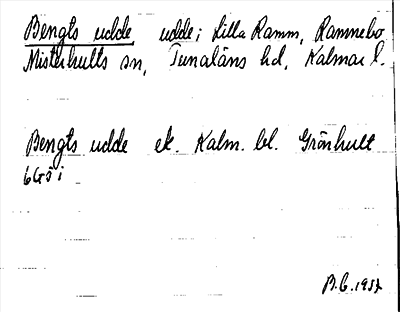 Bengts udde udde i Lilla Ramm, Rammebo
Misterhults sn, Tunaläns hd, Kalmar l.
Bengts udde ek. Kalm. bl. Grönhult
6G5i
B.C. 1937